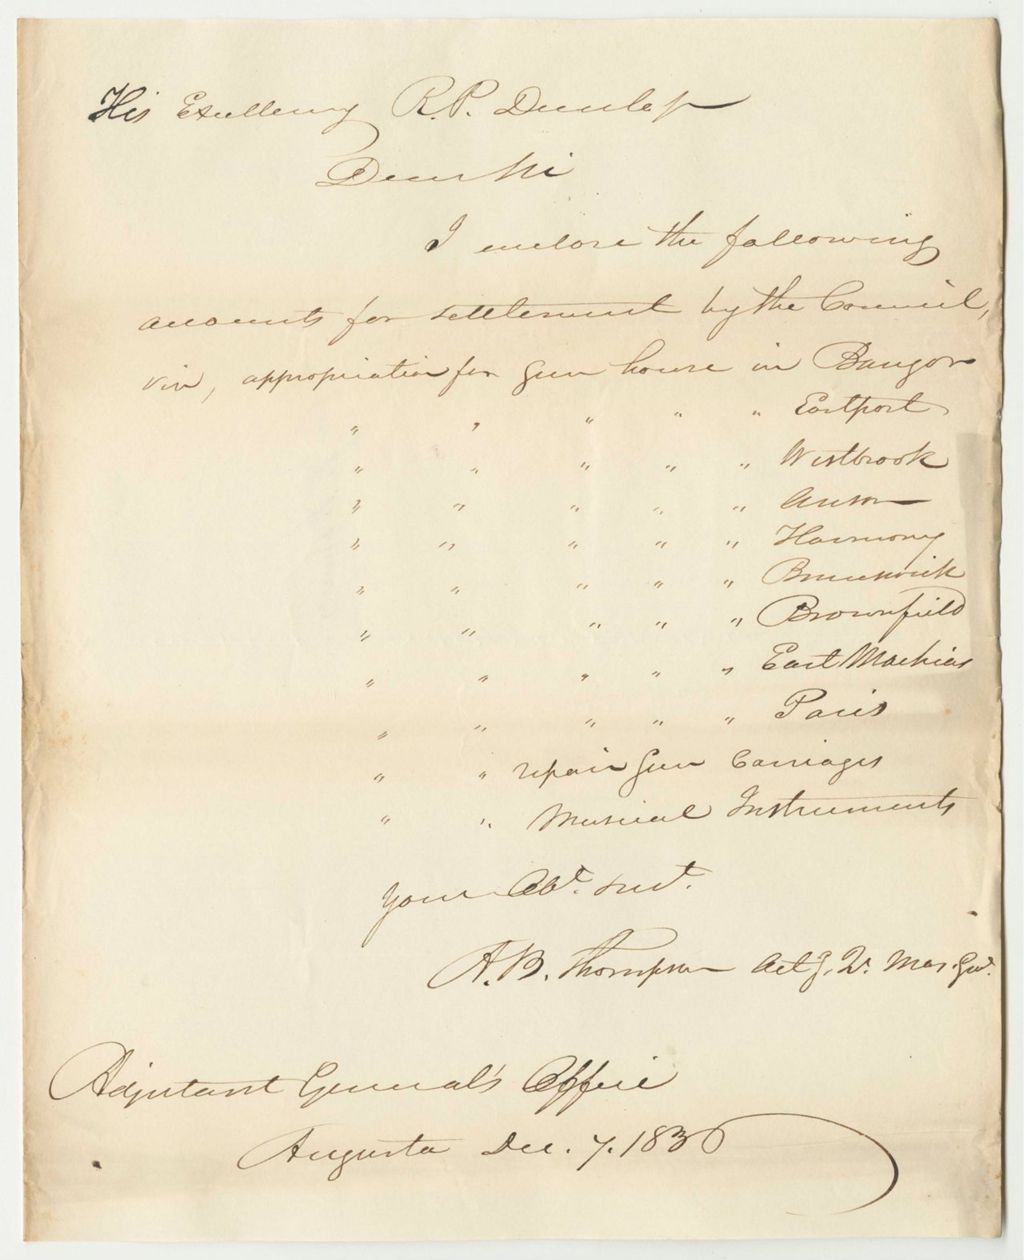 His Excellency R. P. Dunlap
Dear Sir
I enclose the following
accounts for settlement by the Council,
viz, appropriation for Gun house in Bangor
" " " " " Eastport
" " " " " Westbrook
" " " " " Anson
" " " " " Harmony
" " " " " Brunswick
" " " " " Brownfield
" " " " " East Machias
" " " " " Paris
" " repair Gun Carriages
" " Musical Instruments
Your Obt. Sert.
A. B. Thompson Actg. Qr. Mas. Genl.
Adjutant General's Office
Augusta Dec. 7. 1836